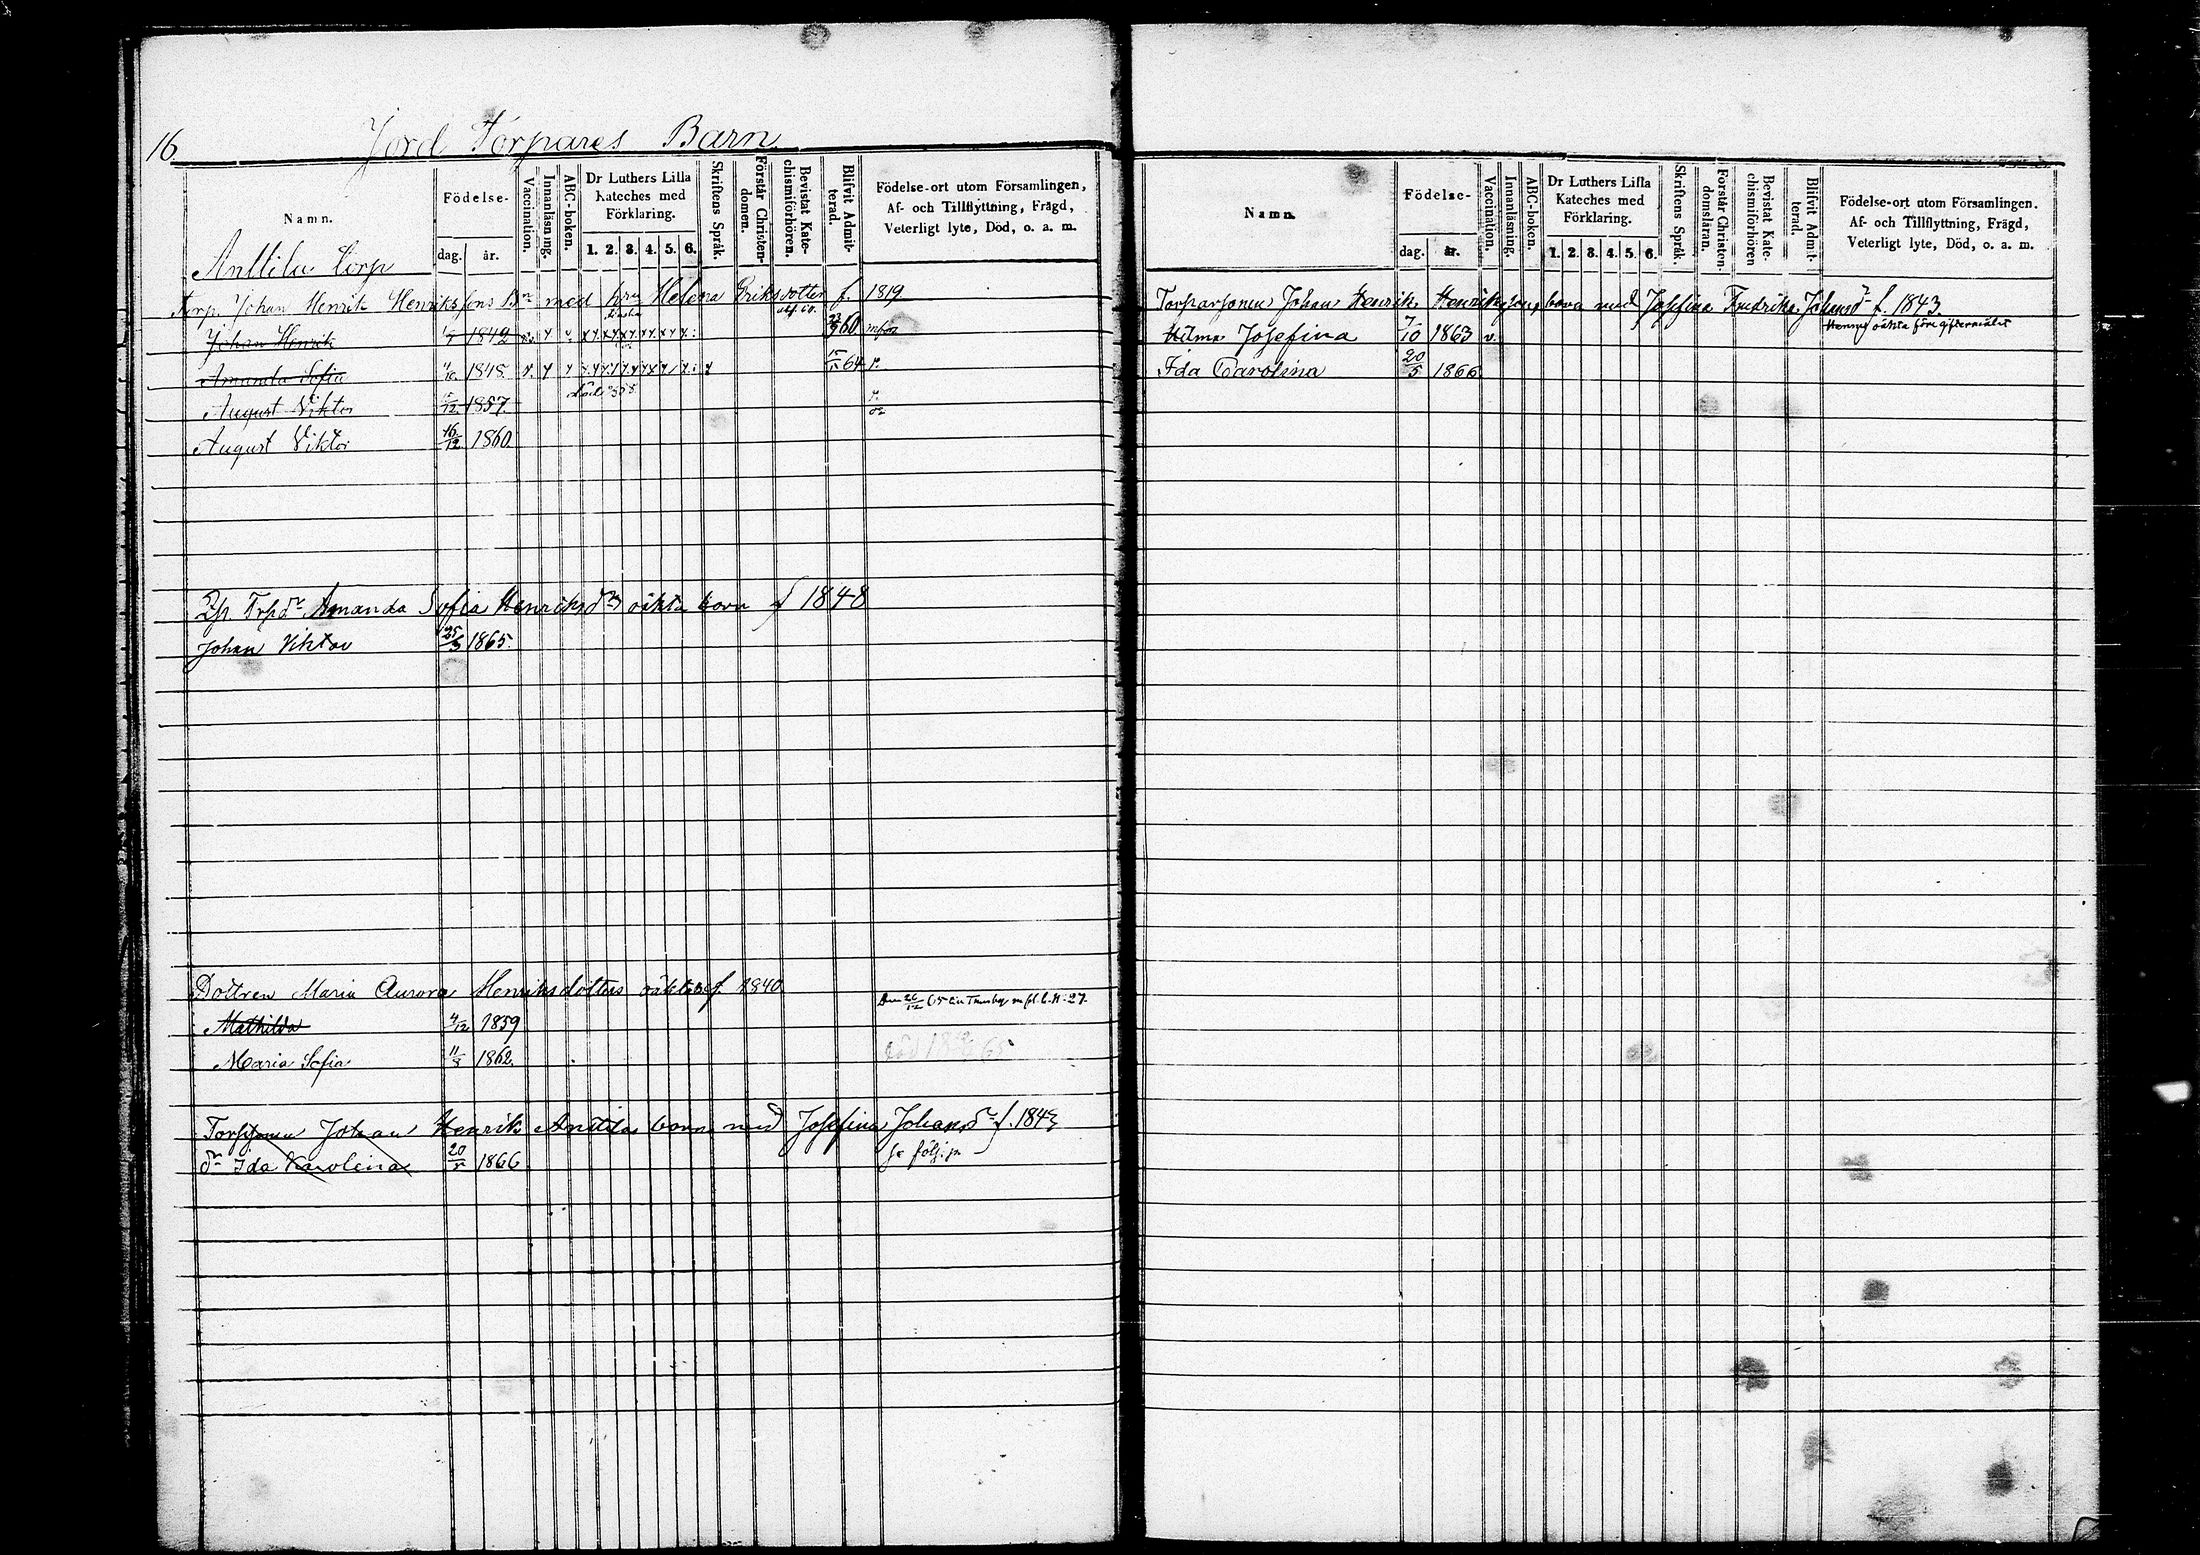 16.
Jord Torpares Barn
Namn.
Födelse-
dag. år.
Vaccination.
Innanläsning.
ABC-boken.
Dr Luthers Lilla
Kateches med
Förklaring.
1. 2. 3. 4. 5. 6.
Skriftens Språk.
Förstår Christen-
domen.
Bevistat Kate-
chismiförhören.
Blifvit Admit-
terad.
Födelse-ort utom Församlingen,
Af- och Tillflyttning, Frägd,
Veterligt lyte, Död, o. a. m.
Anttila torp
Torp. Johan Henrik Henrikssons Bn med hru Helena Eriksdotter f. 1819
Johan Henrik 1842 60
Amanda Sofia 1848 64
August Viktor 1857
August Viktor 16/12 1860.
Amanda Sofia Henriksdrs oäkta barn f 1848
Johan Viktor 25/3 1865.
Dottren Maria Aurora Henriksdotters oäkta f. 1840
Mathilda 4/12 1859
Maria Sofia 11/8 1862.
Torpsonen Johan Henrik Anttilas barn med Josefina Johansdr f. 1843
dr Ida Karolina 20/5 1866 se följ. p.
Namn.
Födelse-
dag. år.
Vaccination.
Innanläsning.
ABC-boken.
Dr Luthers Lilla
Kateches med
Förklaring.
1. 2. 3. 4. 5. 6.
Skriftens Språk.
Förstår Christen-
domsläran.
Bevistat Kate-
chismiförhören
Blifvit Admit-
terad.
Födelse-ort utom Församlingen.
Af- och Tillflyttning, Frägd,
Veterligt lyte, Död, o. a. m.
Torparsonen Johan Henrik Henrikssons barn med Josefina Fredrika Johansdr f. 1843.
Hilma Josefina 7/10 1863 v. oäkta före giftermålet
Ida Carolina 20/5 1866